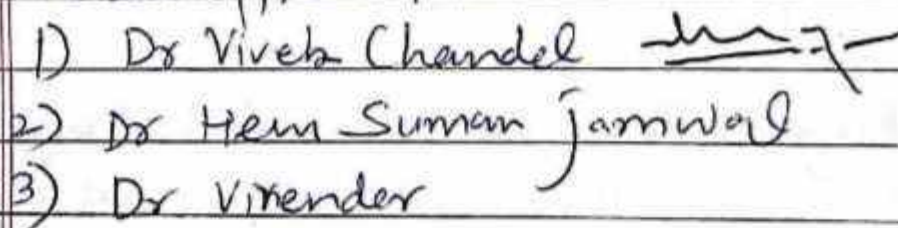 1) Dr Vivek Chandel
2) Dr Hem Suman Jamwal
3) Dr Virender